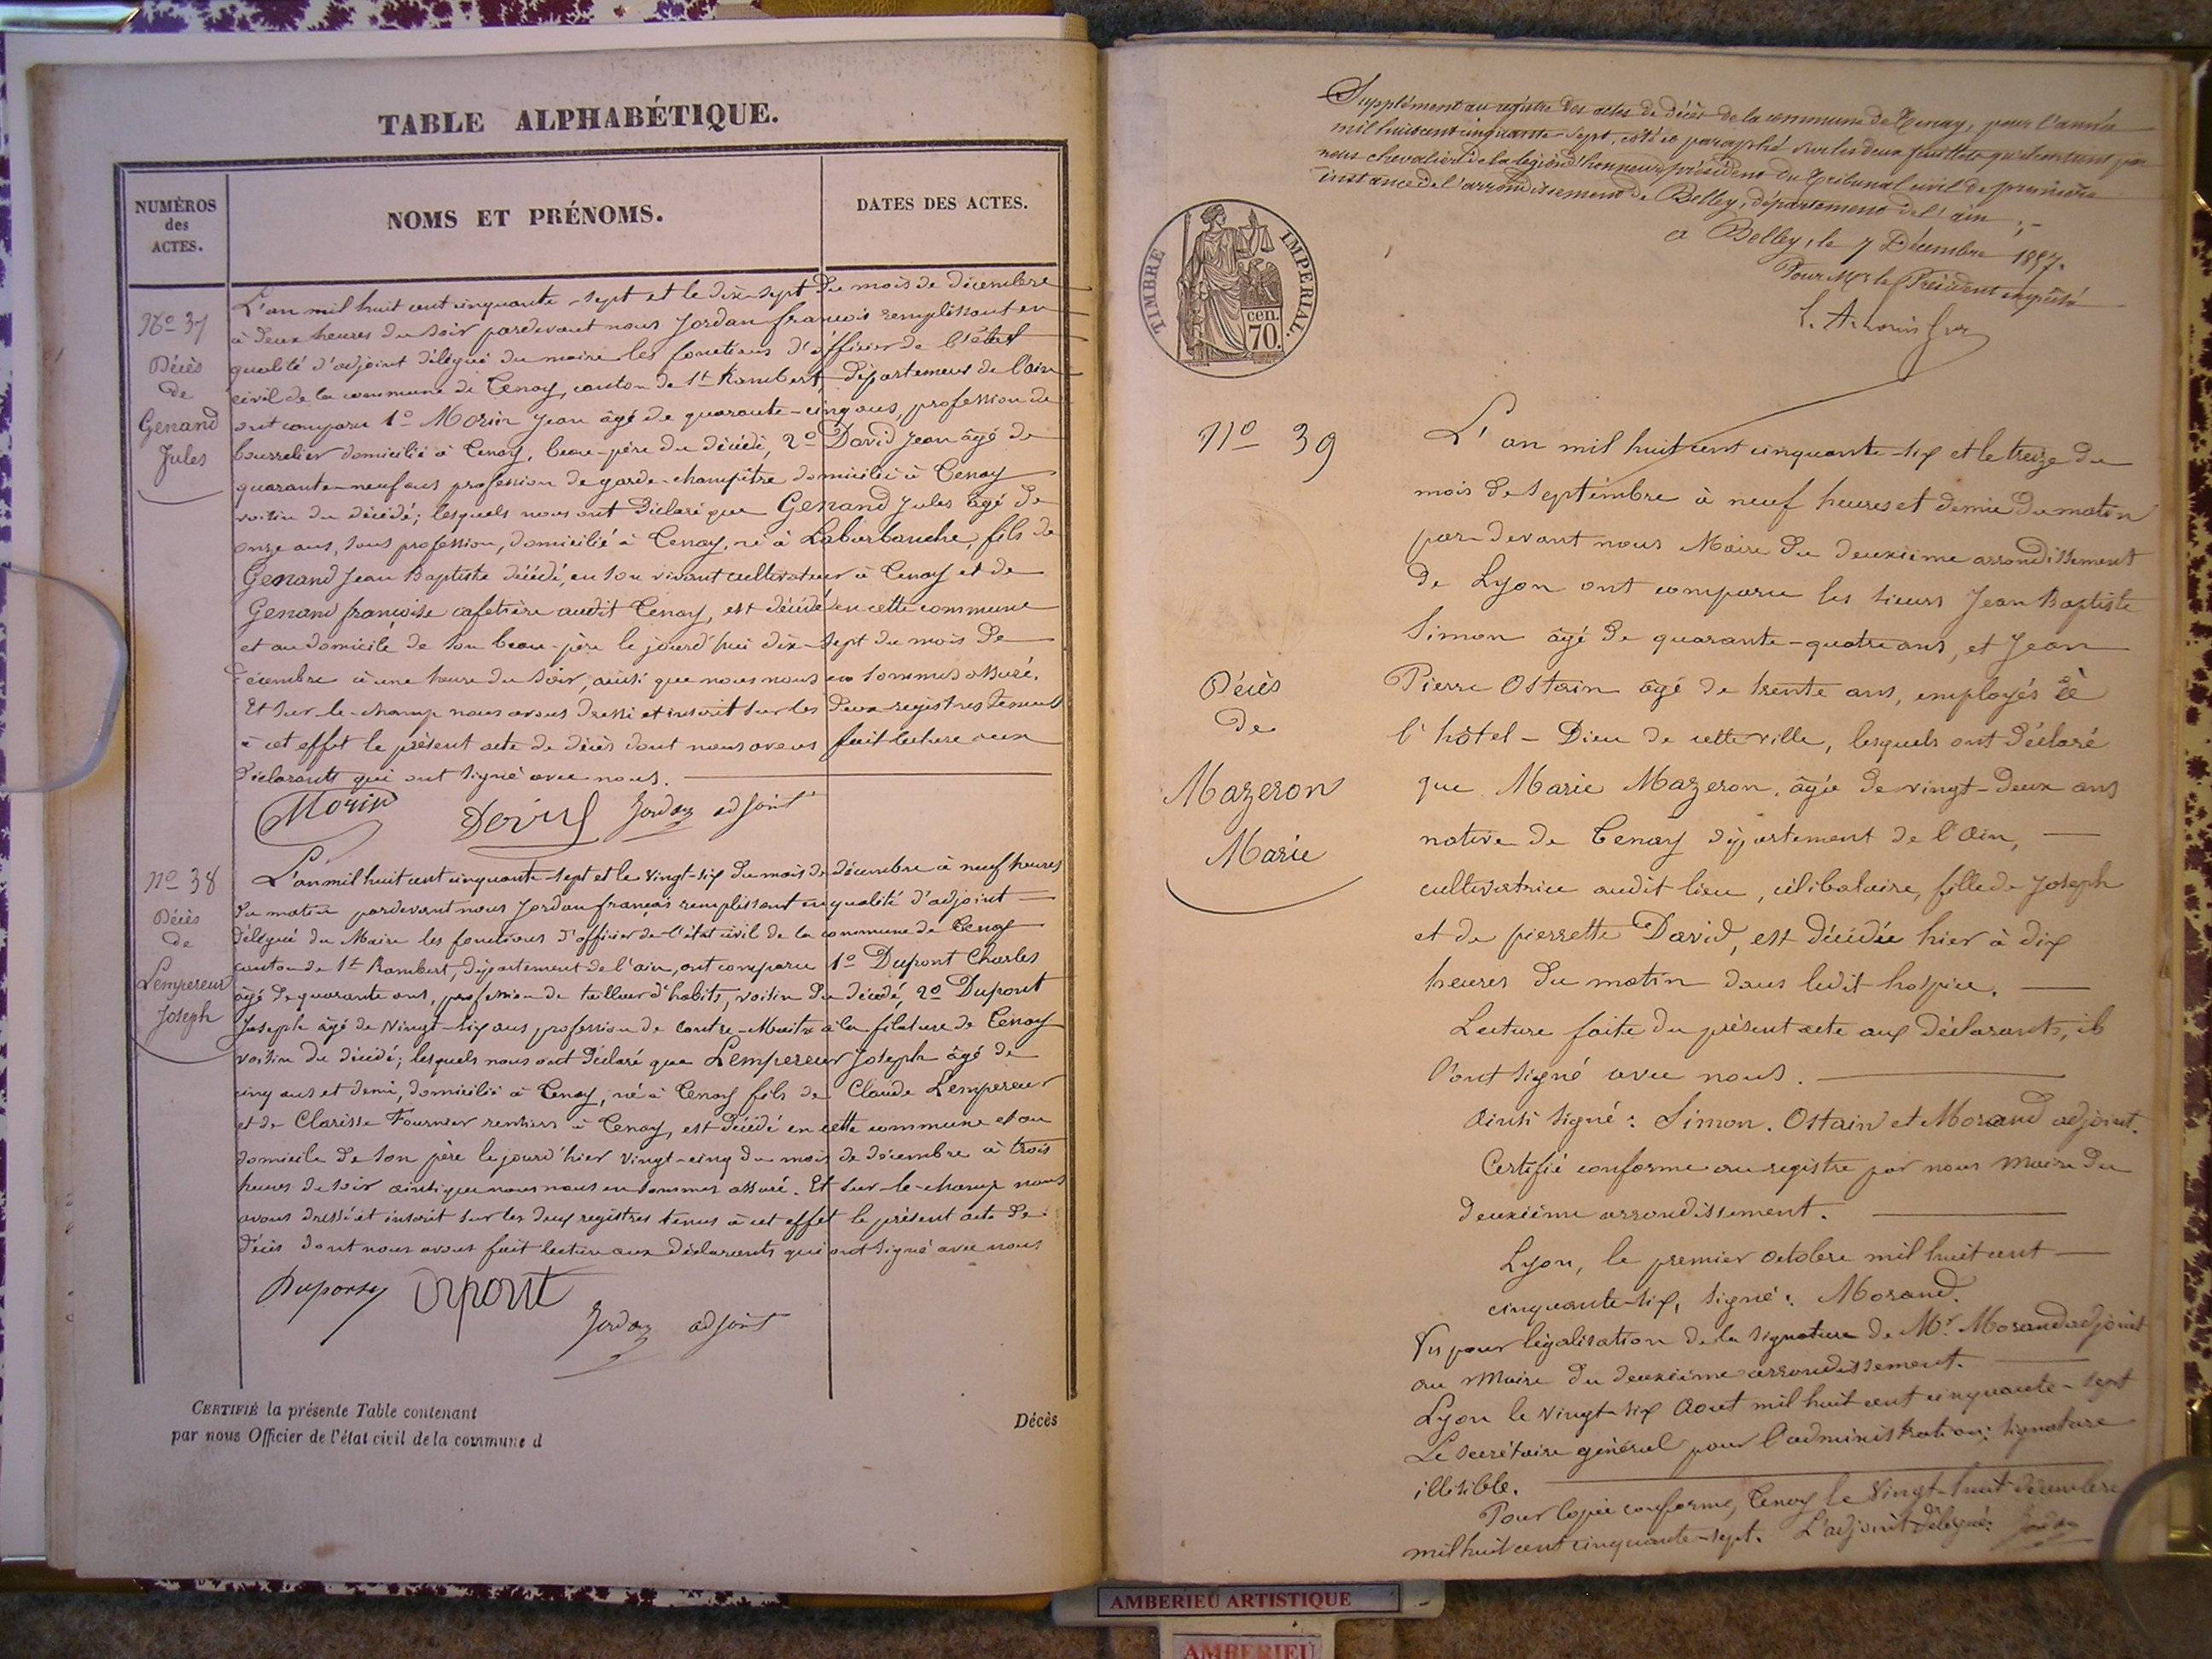 TABLE ALPHABÉTIQUE.
NUMÉROS
des
ACTES.
NOMS ET PRÉNOMS.
DATES DES ACTES.
No 37
Décès
de
Genand
Jules
L'an mil huit cent cinquante-sept et le dix-sept du mois de décembre
à deux heures du soir pardevant nous Jordan françois remplissant en
qualité d'adjoint délégué du maire les fonctions d'officier de l'état
civil de la commune de Tenay, canton de St Rambert, département de l'ain
ont comparu 1o Morin Jean âgé de quarante-cinq ans, profession de
bourrelier domicilié à Tenay, beau-père du décédé, 2o David Jean âgé de
quarante-neuf ans profession de garde-champêtre domicilié à Tenay
voisin du décédé; lesquels nous ont déclaré que Genand Jules âgé de
onze ans, sans profession, domicilié à Tenay, né à Laburbanche, fils de
Genand Jean Baptiste décédé, en son vivant cultivateur à Tenay et de
Genand françoise cafetière audit Tenay, est décédé en cette commune
et au domicile de son beau-père le jourd'hui dix-sept du mois de
décembre à une heure du soir, ainsi que nous nous en sommes assuré.
Et sur-le-champ nous avons dressé et inscrit sur les deux registres tenus
à cet effet le présent acte de décès dont nous avons fait lecture aux
déclarants qui ont signé avec nous.
Morin David Jordan adjoint
No 38
Décès
de
Lempereur
Joseph
L'an mil huit cent cinquante-sept et le vingt-six du mois de décembre à neuf heures
du matin pardevant nous Jordan françois remplissant en qualité d'adjoint
délégué du Maire les fonctions d'officier de l'état civil de la commune de Tenay
canton de St Rambert, département de l'ain, ont comparu 1o Dupont Charles
âgé de quarante ans, profession de tailleur d'habits, voisin du décédé, 2o Dupont
Joseph âgé de vingt-six ans profession de contre-Maître à la filature de Tenay
voisin du décédé; lesquels nous ont déclaré que Lempereur Joseph âgé de
cinq ans et demi, domicilié à Tenay, né à Tenay fils de Claude Lempereur
et de Clarisse Fournier rentiers à Tenay, est décédé en cette commune et au
domicile de son père le jourd'hier vingt-cinq du mois de décembre à trois
heures du soir ainsi que nous nous en sommes assuré. Et sur-le-champ nous
avons dressé et inscrit sur les deux registres tenus à cet effet le présent acte de
décès dont nous avons fait lecture aux déclarants qui ont signé avec nous
Dupont Dupont
Jordan adjoint
CERTIFIÉ la présente Table contenant
Décès
par nous Officier de l'état civil de la commune d
Supplément au registre des actes de décès de la commune de Tenay, pour l'année
mil huit cent cinquante-sept, coté et paraphé sur les deux feuillets qu'il contient par
nous chevalier de la légion d'honneur président du Tribunal civil de première
instance de l'arrondissement de Belley, département de l'ain ;
a Belley, le 7 Décembre 1857.
Pour Mr le Président empêché
TIMBRE IMPERIAL.
cen.
70.
No 39
Décès
de
Mazeron
Marie
L'an mil huit cent cinquante-six et le treize du
mois de septembre à neuf heures et demie du matin
par-devant nous Maire du deuxième arrondissement
de Lyon ont comparu les sieurs Jean Baptiste
Simon âgé de quarante-quatre ans, et Jean
Pierre Ostain âgé de trente ans, employés à
l'hôtel-Dieu de cette ville, lesquels ont déclaré
que Marie Mazeron, âgée de vingt-deux ans
native de Tenay département de l'Ain,
cultivatrice audit lieu, célibataire, fille de Joseph
et de pierrette David, est décédée hier à dix
heures du matin dans ledit hospice.
Lecture faite du présent acte aux déclarants, ils
l'ont signé avec nous.
Ainsi signé : Simon. Ostain et Morand adjoint.
Certifié conforme au registre par nous maire du
deuxième arrondissement.
Lyon, le premier octobre mil huit cent
cinquante-six, signé : Morand.
Vu pour légalisation de la signature de Mr Morand adjoint
au Maire du deuxième arrondissement.
Lyon le vingt-six Aout mil huit cent cinquante-sept
Le secrétaire général pour l'administration: signature
illisible.
Pour Copie conforme, Tenay le vingt-huit décembre
mil huit cent cinquante-sept. L'adjoint délégué: Jordan
AMBERIEU ARTISTIQUE
AMBERIEU